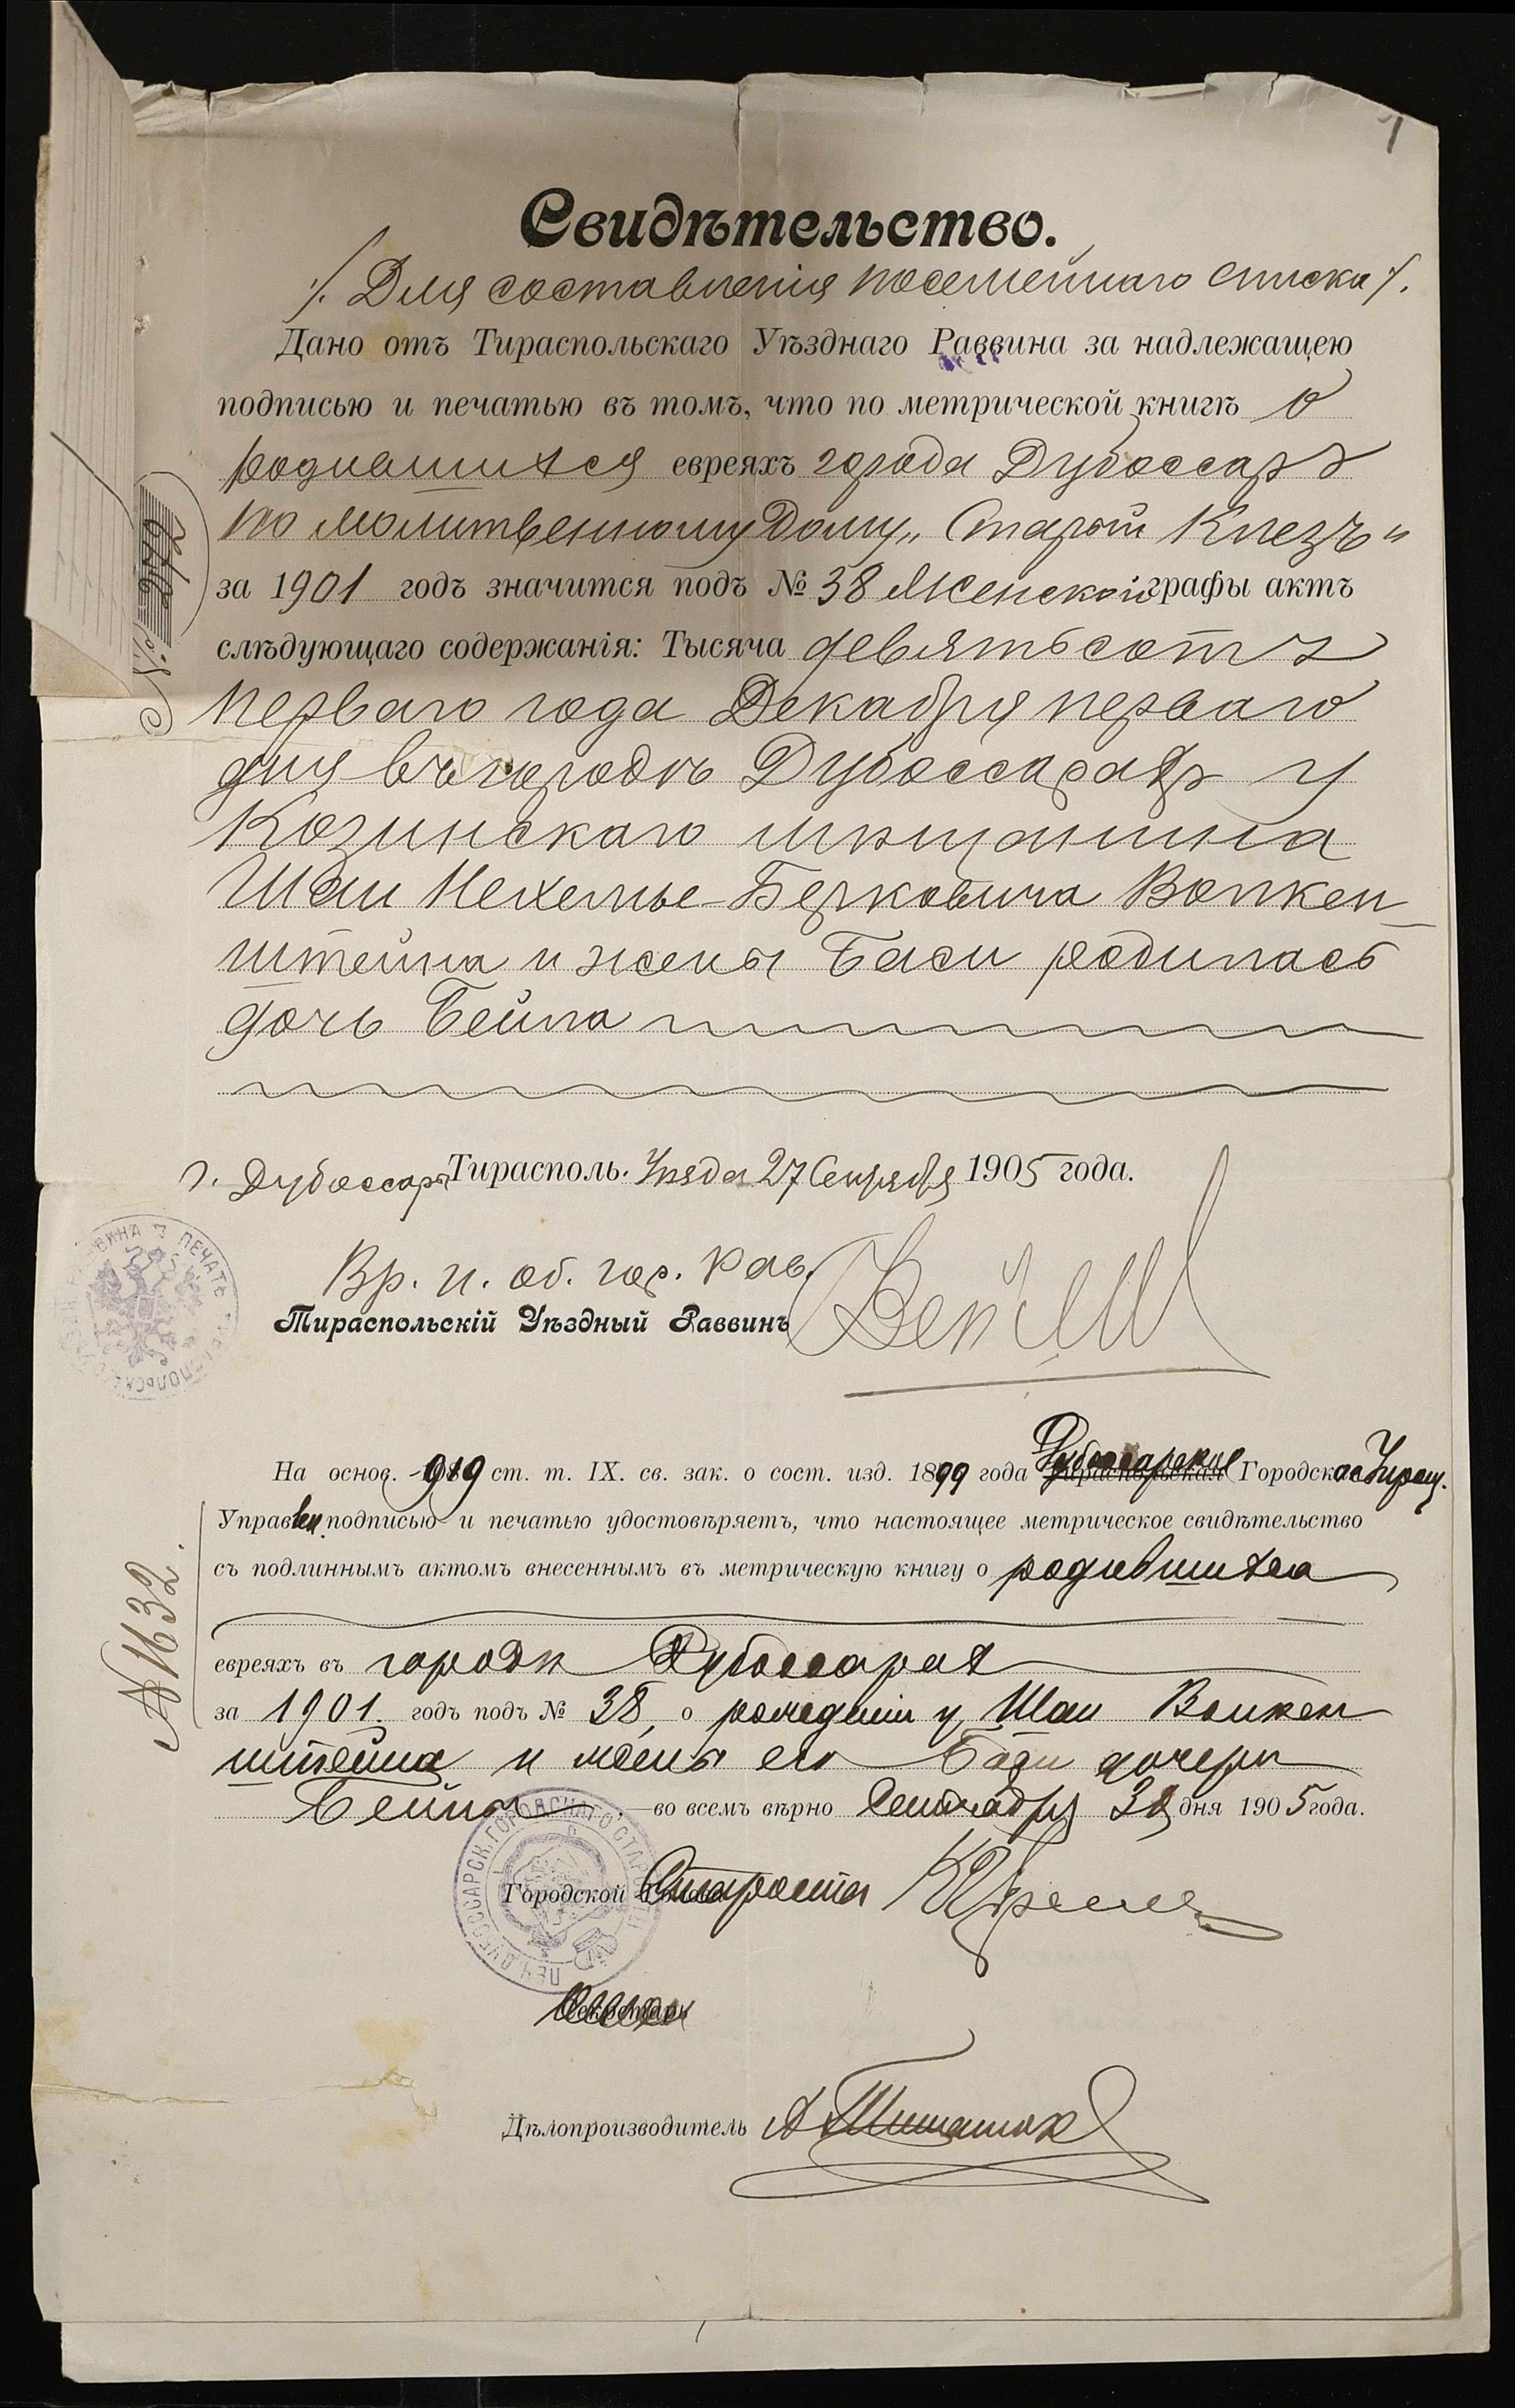 1
Свидѣтельство.
/. Для составленія посемейнаго списка /.
Дано отъ Тираспольскаго Уѣзднаго Раввина за надлежащею
подписью и печатью въ томъ, что по метрической книгѣ о
родившихся евреяхъ города Дубоссаръ
по молитвенному Дому „Старый Клезъ"
за 1901 годъ значится подъ № 38 Женской графы актъ
слѣдующаго содержанія: Тысяча девятьсотъ
перваго года Декабря перваго
дня въ городѣ Дубоссарахъ у
Козинскаго мѣщанина
Шаи Нехемье-Берковича Волкен
штейна и жены Баси родилась
дочь Бейла
г. Дубоссары Тирасполь. Уѣзда 27 Сентября 1905 года.
Вр. и. об. гор. Рав.
Тираспольскій Уѣздный Раввинъ
На основ. 919 ст. т. IX. св. зак. о сост. изд. 1899 года Дубоссарское Тираспольская Городское Упрощ.
Управлен. подписью и печатью удостовѣряетъ, что настоящее метрическое свидѣтельство
съ подлиннымъ актомъ внесеннымъ въ метрическую книгу о родившихся
№ 1632.
евреяхъ въ городѣ Дубоссарах
за 1901. годъ подъ № 38, о рожденіи у Шаи Волкен
штейна и жены его Баси дочери
Бейлы во всемъ вѣрно Сентября 30 дня 1905 года.
Городской Староста
Секретарь
Дѣлопроизводитель